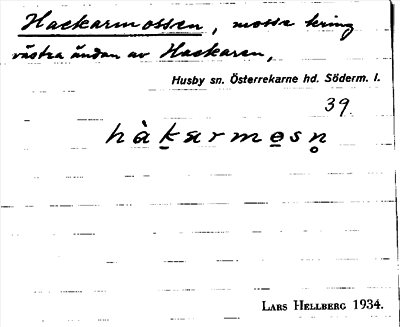 Hackarmossen, mosse kring
västra ändan av Hackaren,
Husby sn. Österrekarne hd. Söderm. l.
39.
hàkarmosn̥
LARS HELLBERG 1934.